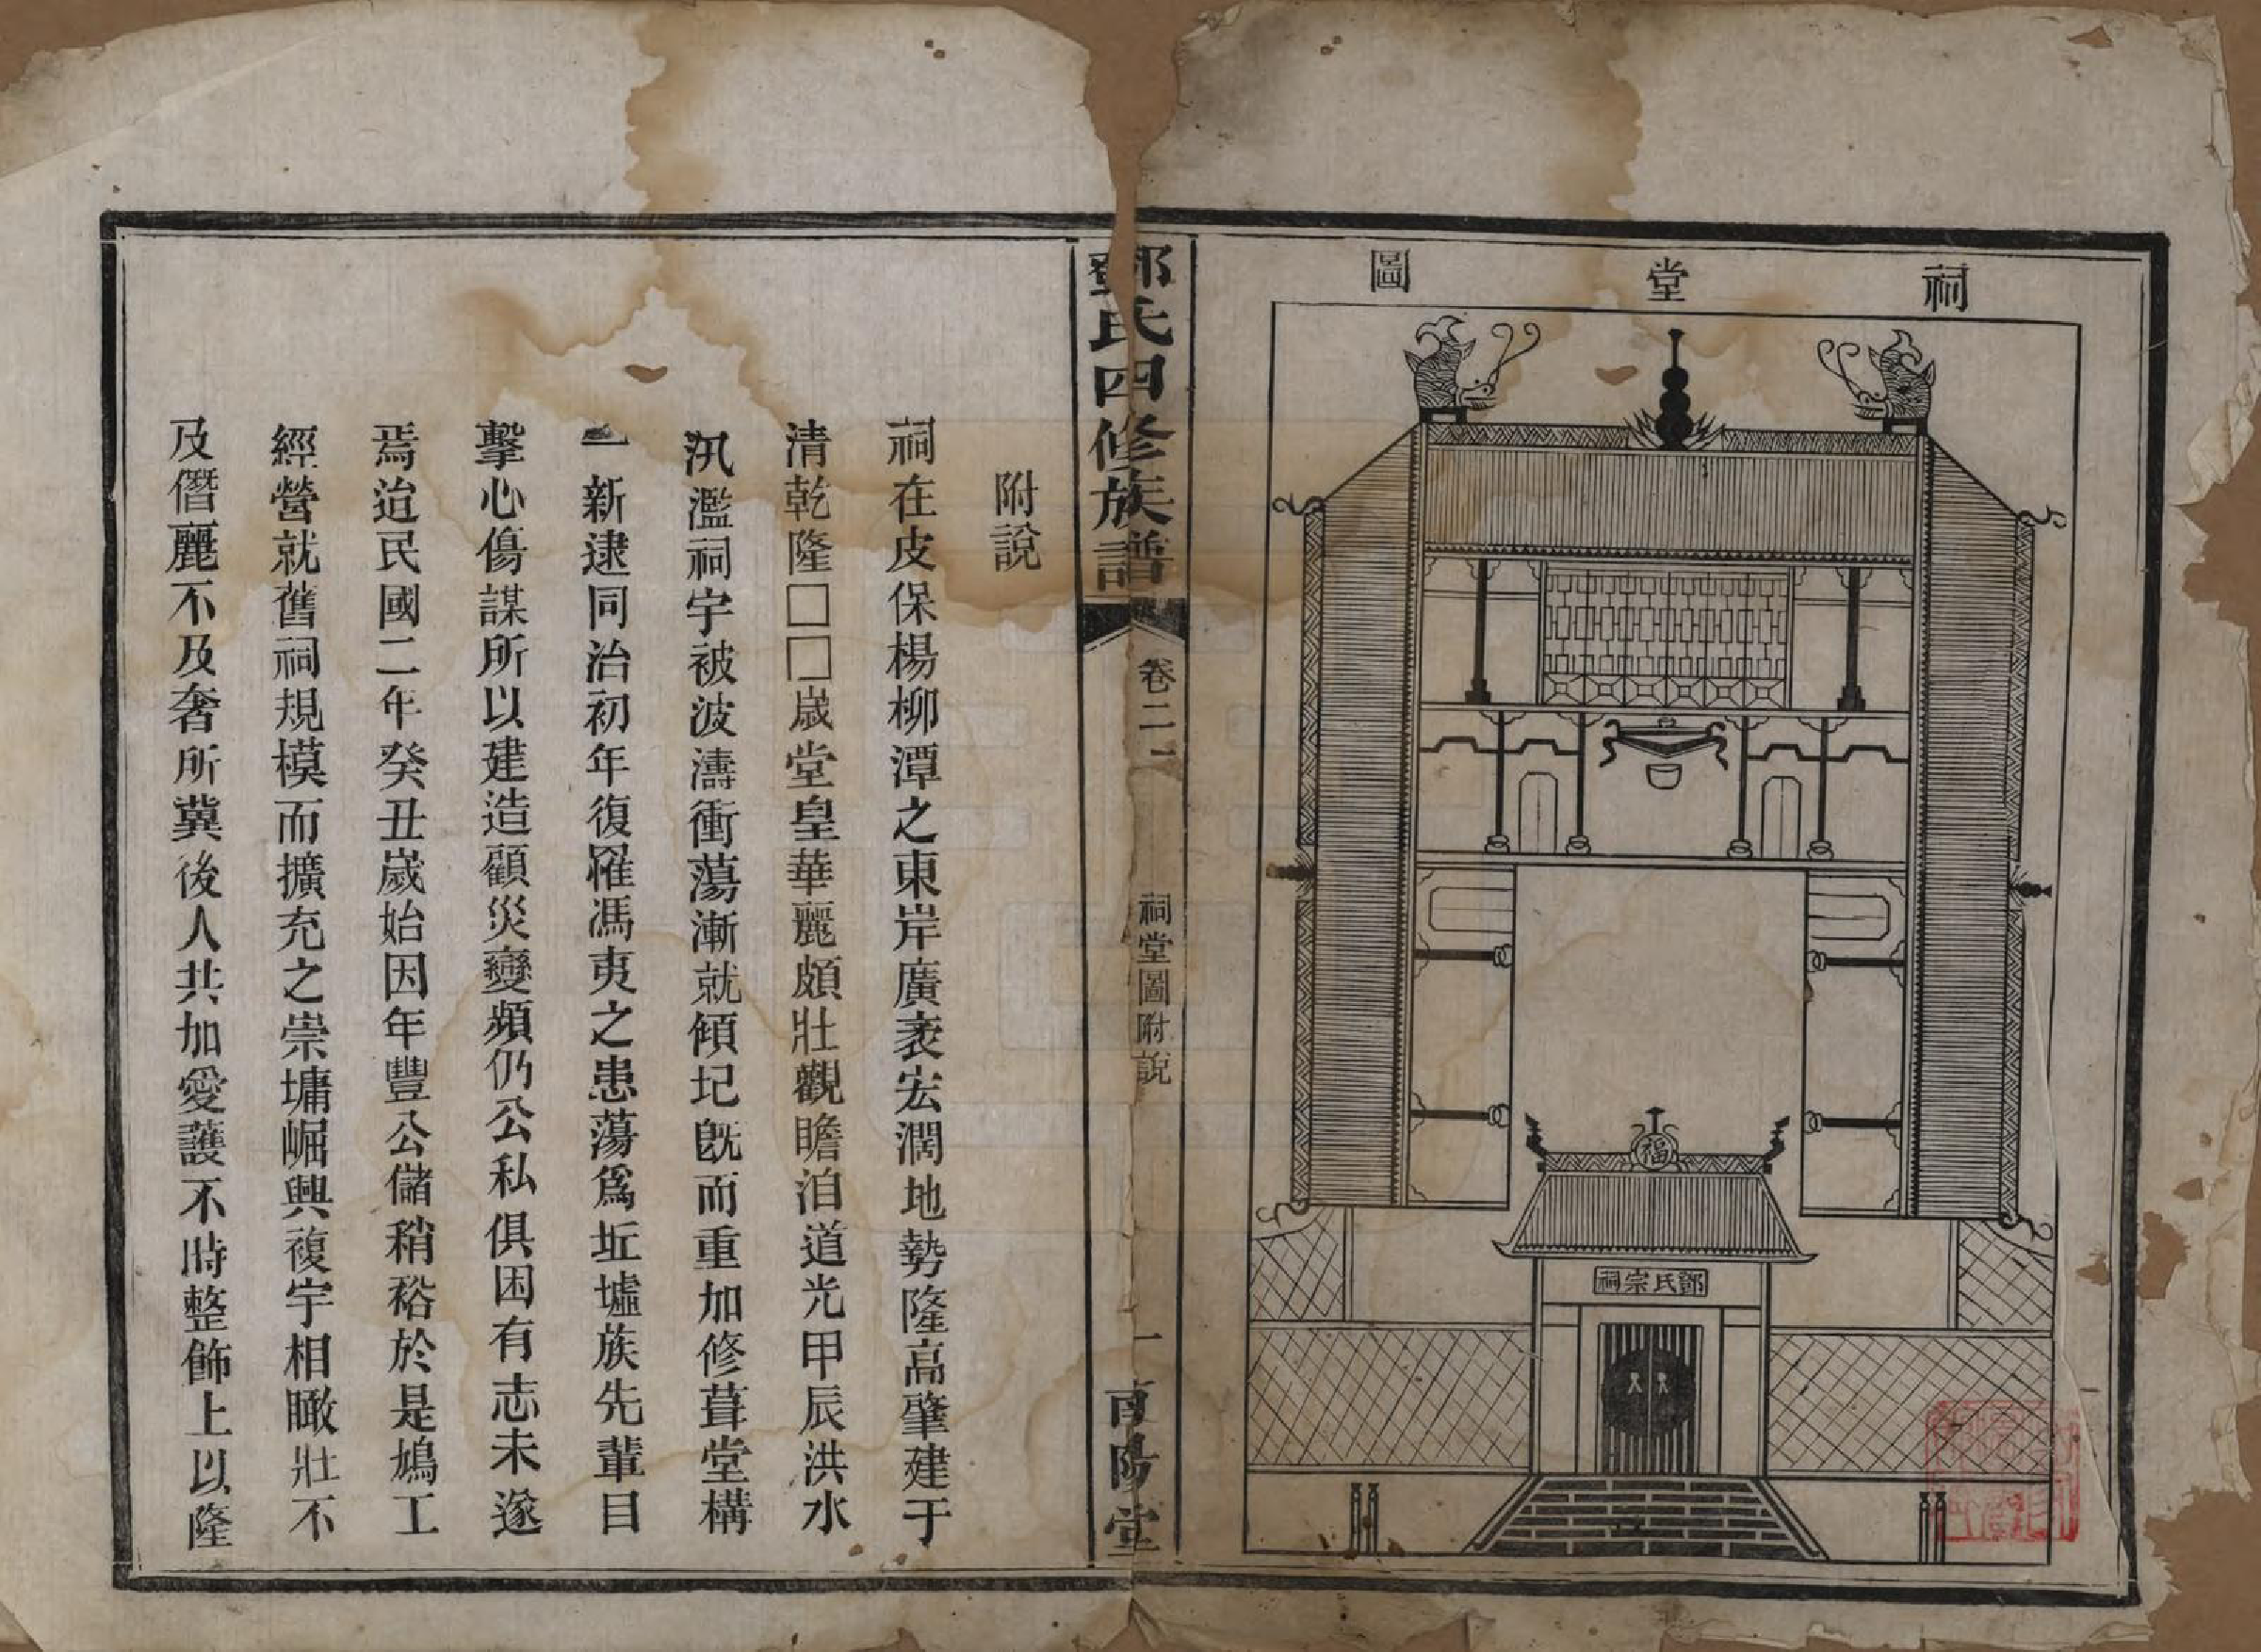 祠堂圖
福
鄧氏宗祠
鄧氏四修族譜
卷二上
祠堂圖附說
一
南陽堂
附說
祠在皮保楊柳潭之東岸廣袤宏濶地勢隆高肇建于
清乾隆□□歲堂皇華麗頗壯觀瞻洎道光甲辰洪水
汎濫祠宇被波濤衝蕩漸就傾圮旣而重加修葺堂構
一新逮同治初年復罹馮夷之患蕩爲坵墟族先輩目
擊心傷謀所以建造顧災變頻仍公私俱困有志未遂
焉迨民國二年癸丑歲始因年豐公儲稍裕於是鳩工
經營就舊祠規模而擴充之崇墉崛興複宇相瞰壯不
及僭麗不及奢所冀後人共加愛護不時整飾上以隆